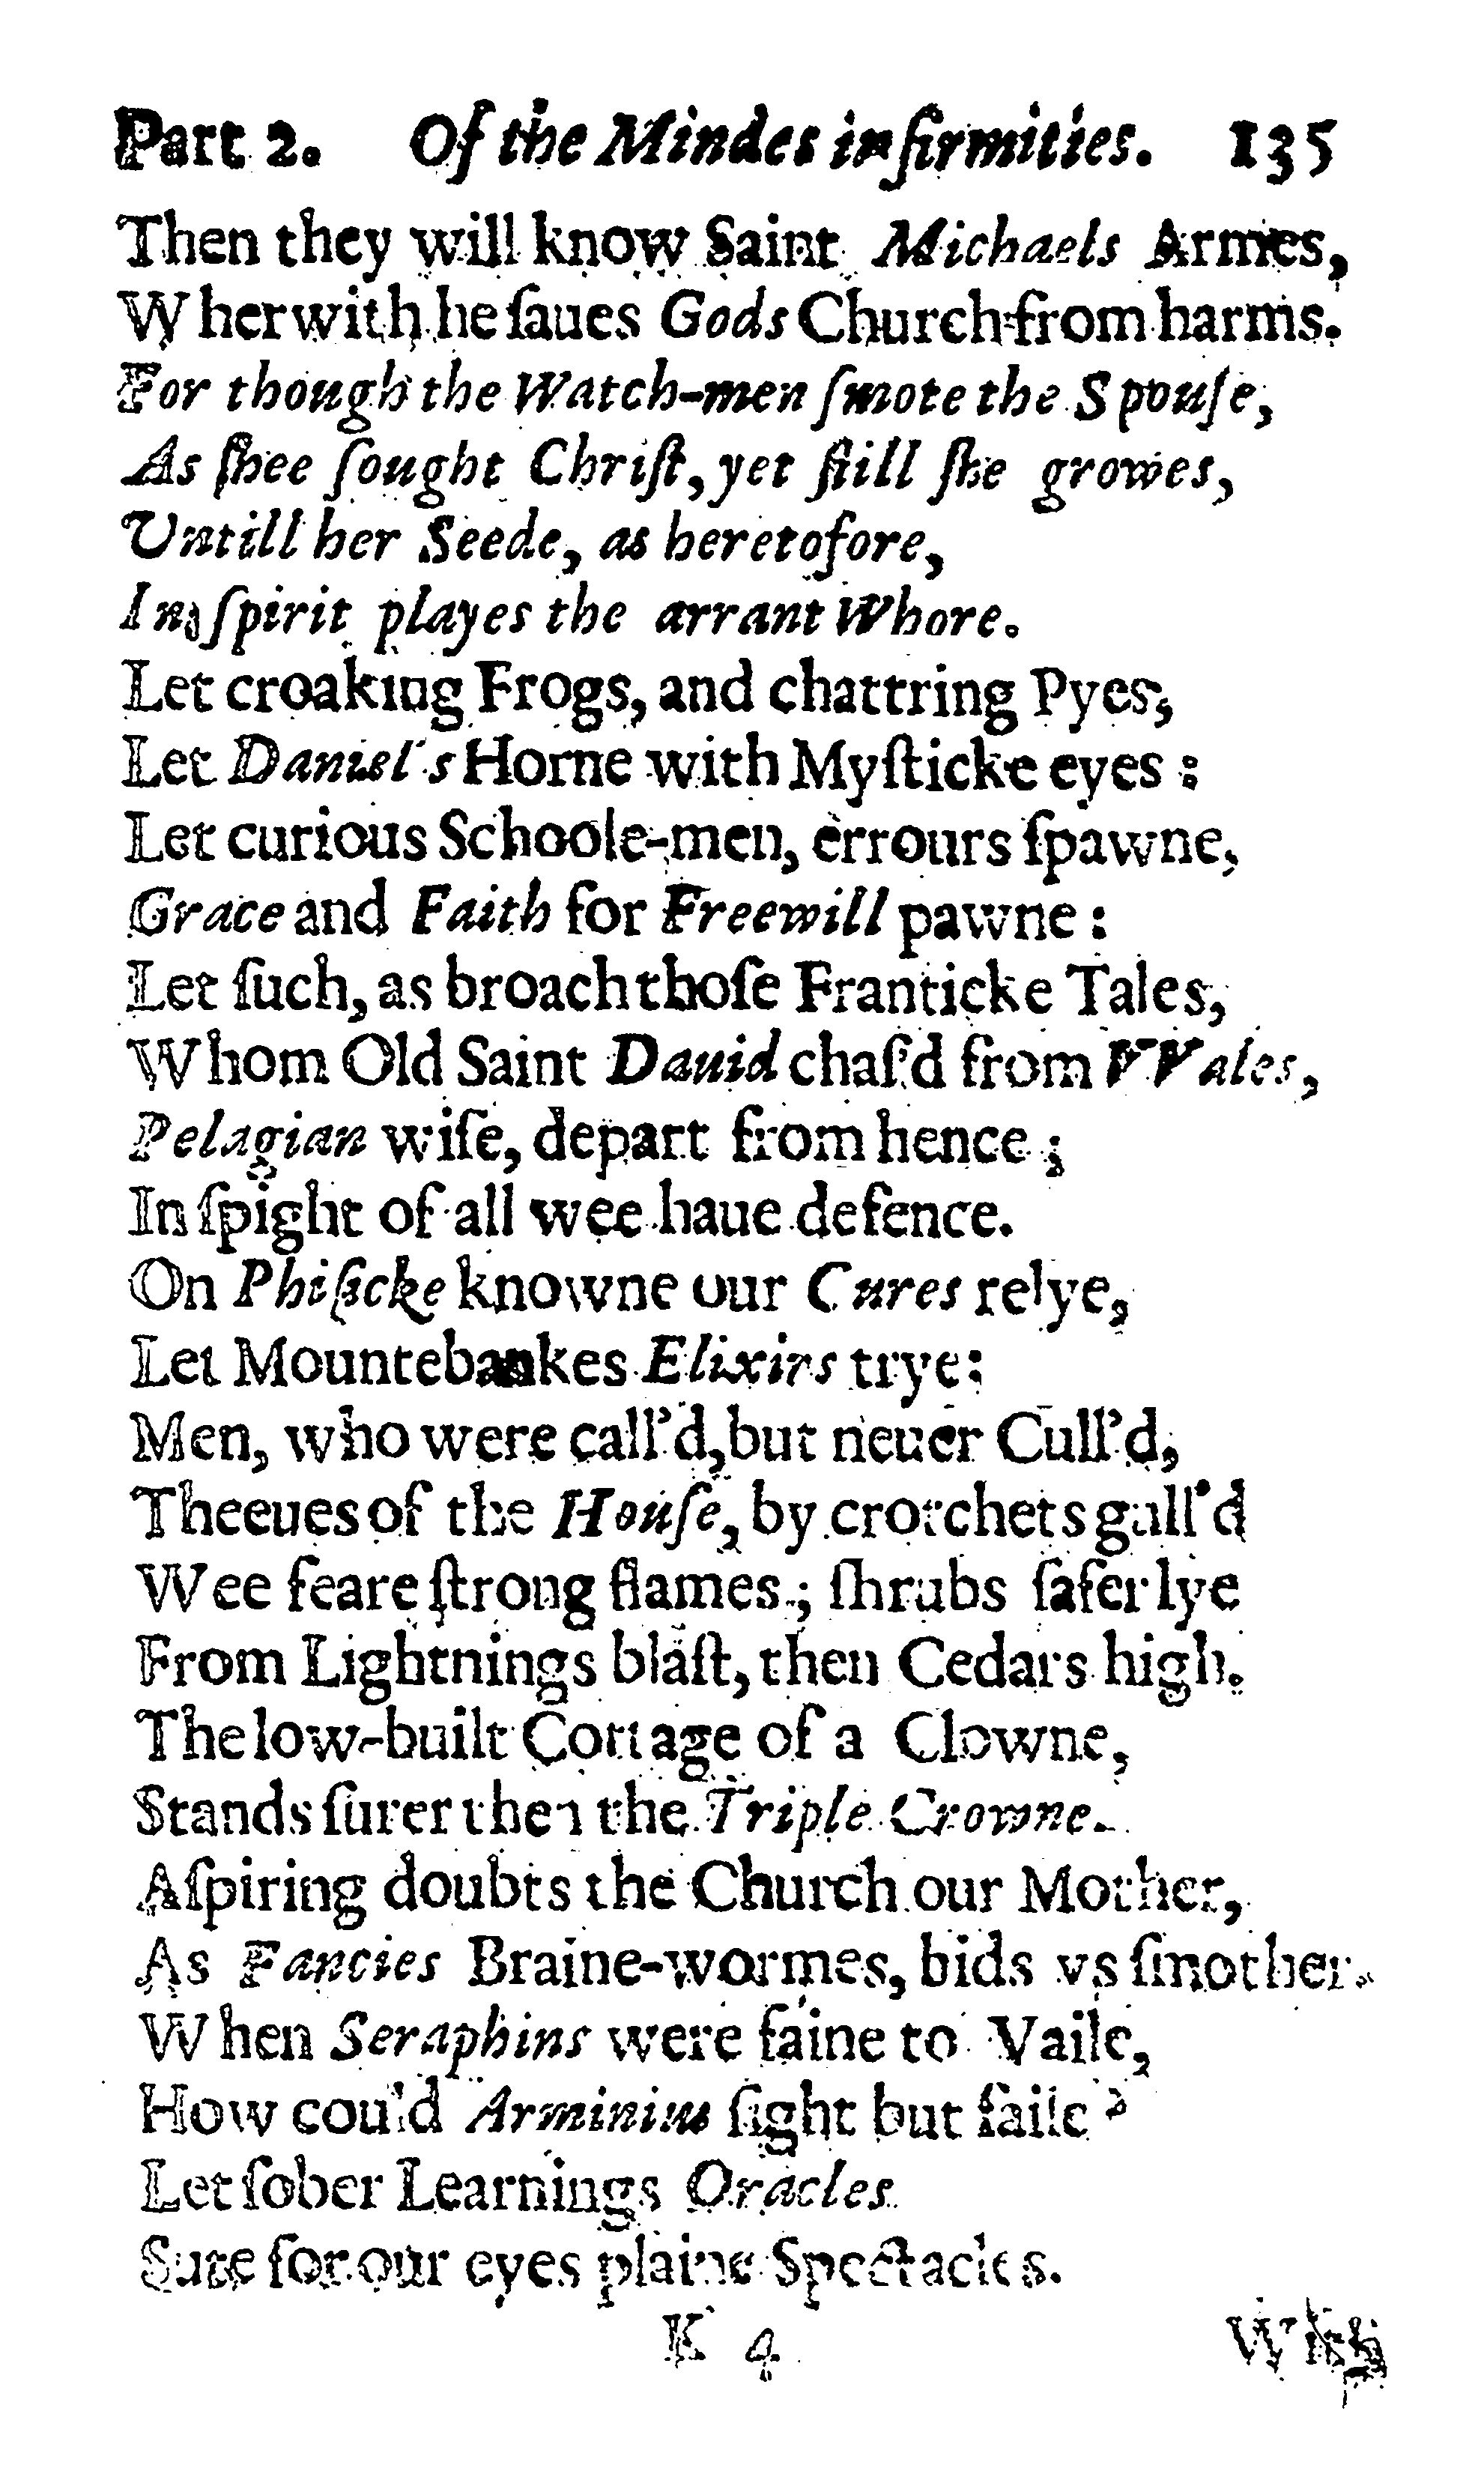 Part 2. Of the Mindes infirmities. 135
Then they will know Saint Michaels Armes,
Wherwith he ſaues Gods Church from harms.
For though the Watch-men ſmote the Spouſe,
As ſhee ſought Chriſt, yet ſtill ſhe growes,
Untill her Seede, as heretofore,
In ſpirit playes the arrant Whore.
Let croaking Frogs, and chattring Pyes,
Let Daniel's Horne with Myſticke eyes:
Let curious Schoole-men, errours ſpawne,
Grace and Faith for Freewill pawne:
Let ſuch, as broach thoſe Franticke Tales,
Whom Old Saint Dauid chaſ'd from VVales,
Pelagian wiſe, depart from hence;
In ſpight of all wee haue defence.
On Phiſicke knowne our Cures relye,
Let Mountebankes Elixirs trye:
Men, who were call'd, but neuer Cull'd,
Theeues of the Houſe, by crotchets gull'd
Wee feare ſtrong flames; ſhrubs ſafer lye
From Lightnings blaſt, then Cedars high.
The low-built Cottage of a Clowne,
Stands ſurer then the Triple Crowne.
Aſpiring doubts the Church our Mother,
As Fancies Braine-wormes, bids vs ſmother.
When Seraphins were faine to Vaile,
How could Arminius ſight but faile?
Let ſober Learnings Oracles
Sute for our eyes plaine Spectacles.
K 4